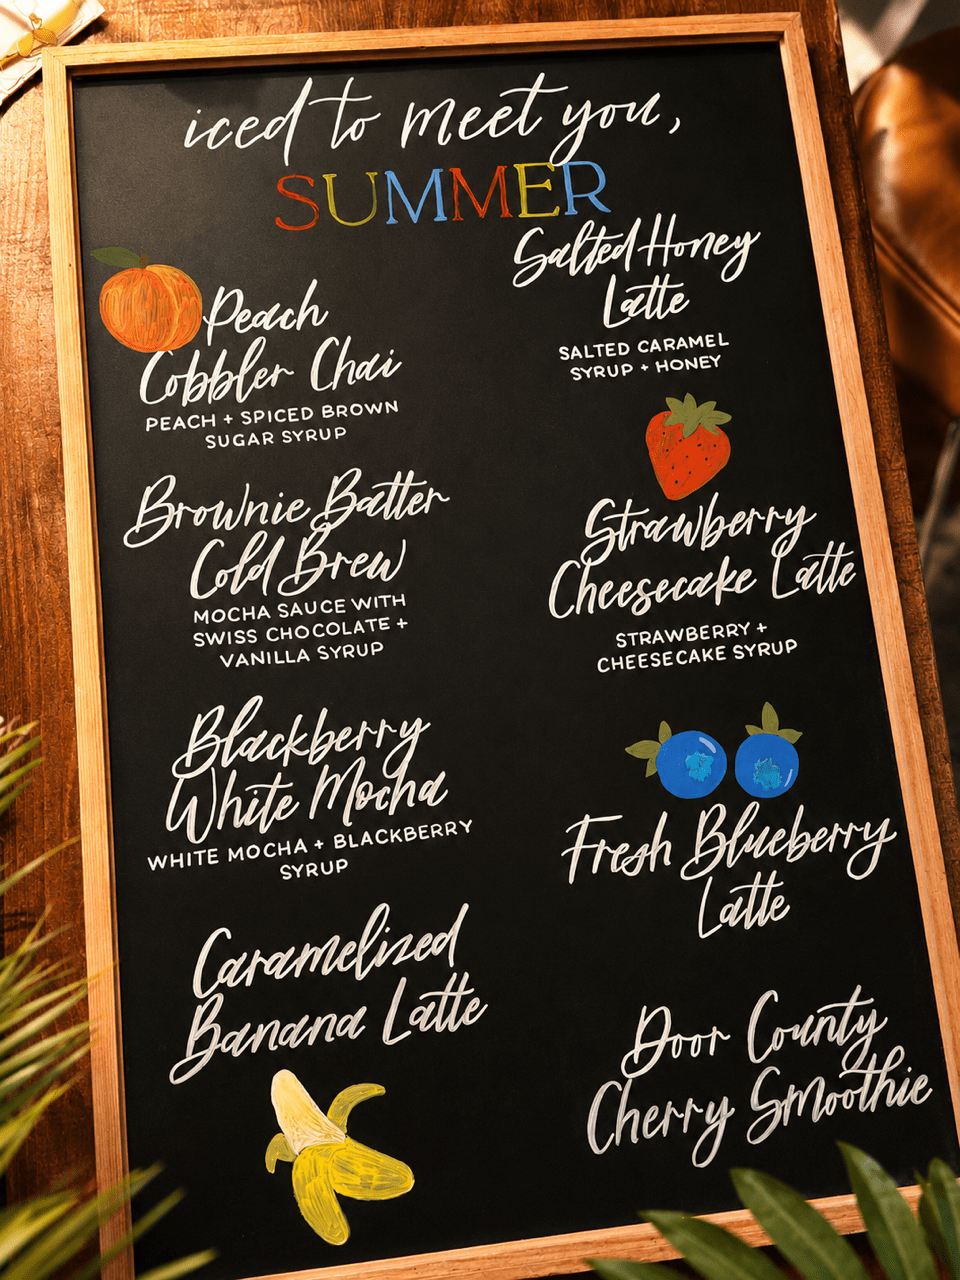 iced to meet you,
SUMMER
Peach
Cobbler Chai
PEACH + SPICED BROWN
SUGAR SYRUP
Brownie Batter
Cold Brew
MOCHA SAUCE WITH
SWISS CHOCOLATE +
VANILLA SYRUP
Blackberry
White Mocha
WHITE MOCHA + BLACKBERRY
SYRUP
Caramelized
Banana Latte
Salted Honey
Latte
SALTED CARAMEL
SYRUP + HONEY
Strawberry
Cheesecake Latte
STRAWBERRY +
CHEESECAKE SYRUP
Fresh Blueberry
Latte
Door County
Cherry Smoothie